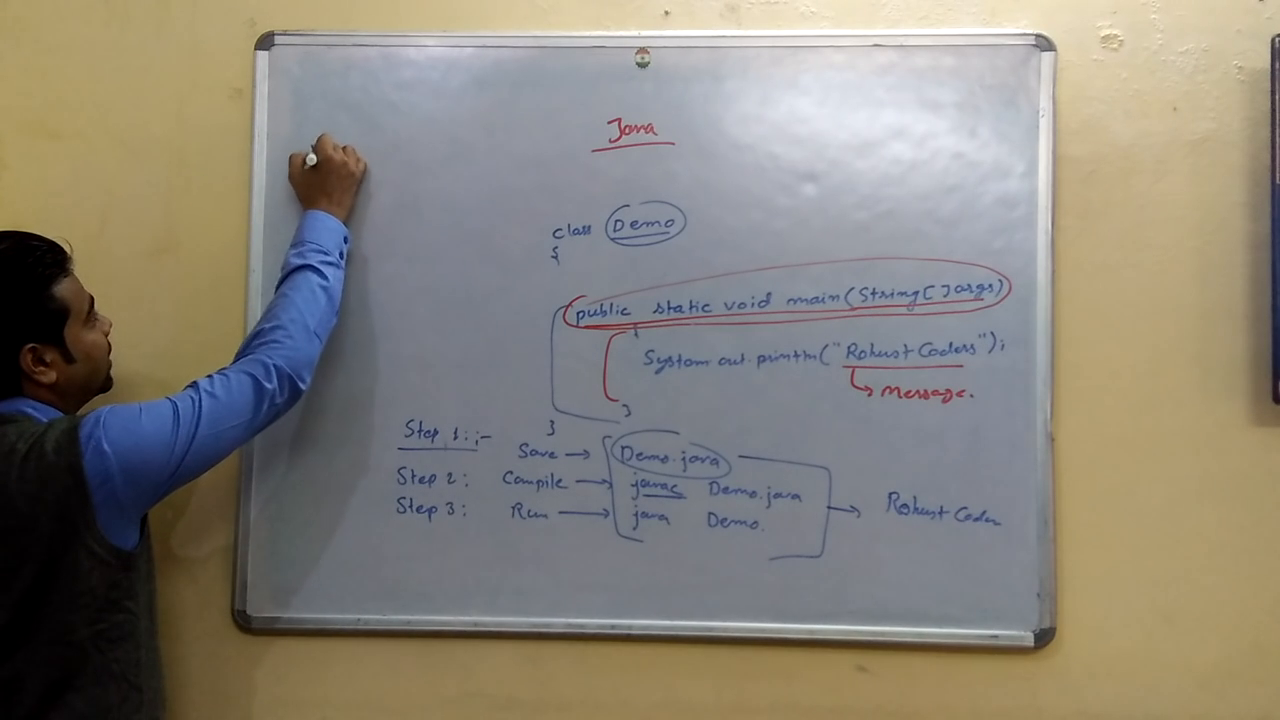 Java
class Demo
{
public static void main(String[] args)
{
System.out.println("Robust Coders");
message.
}
}
Step 1:;- Save → Demo.java
Step 2: Compile → javac Demo.java
Step 3: Run → java Demo. → Robust Coder